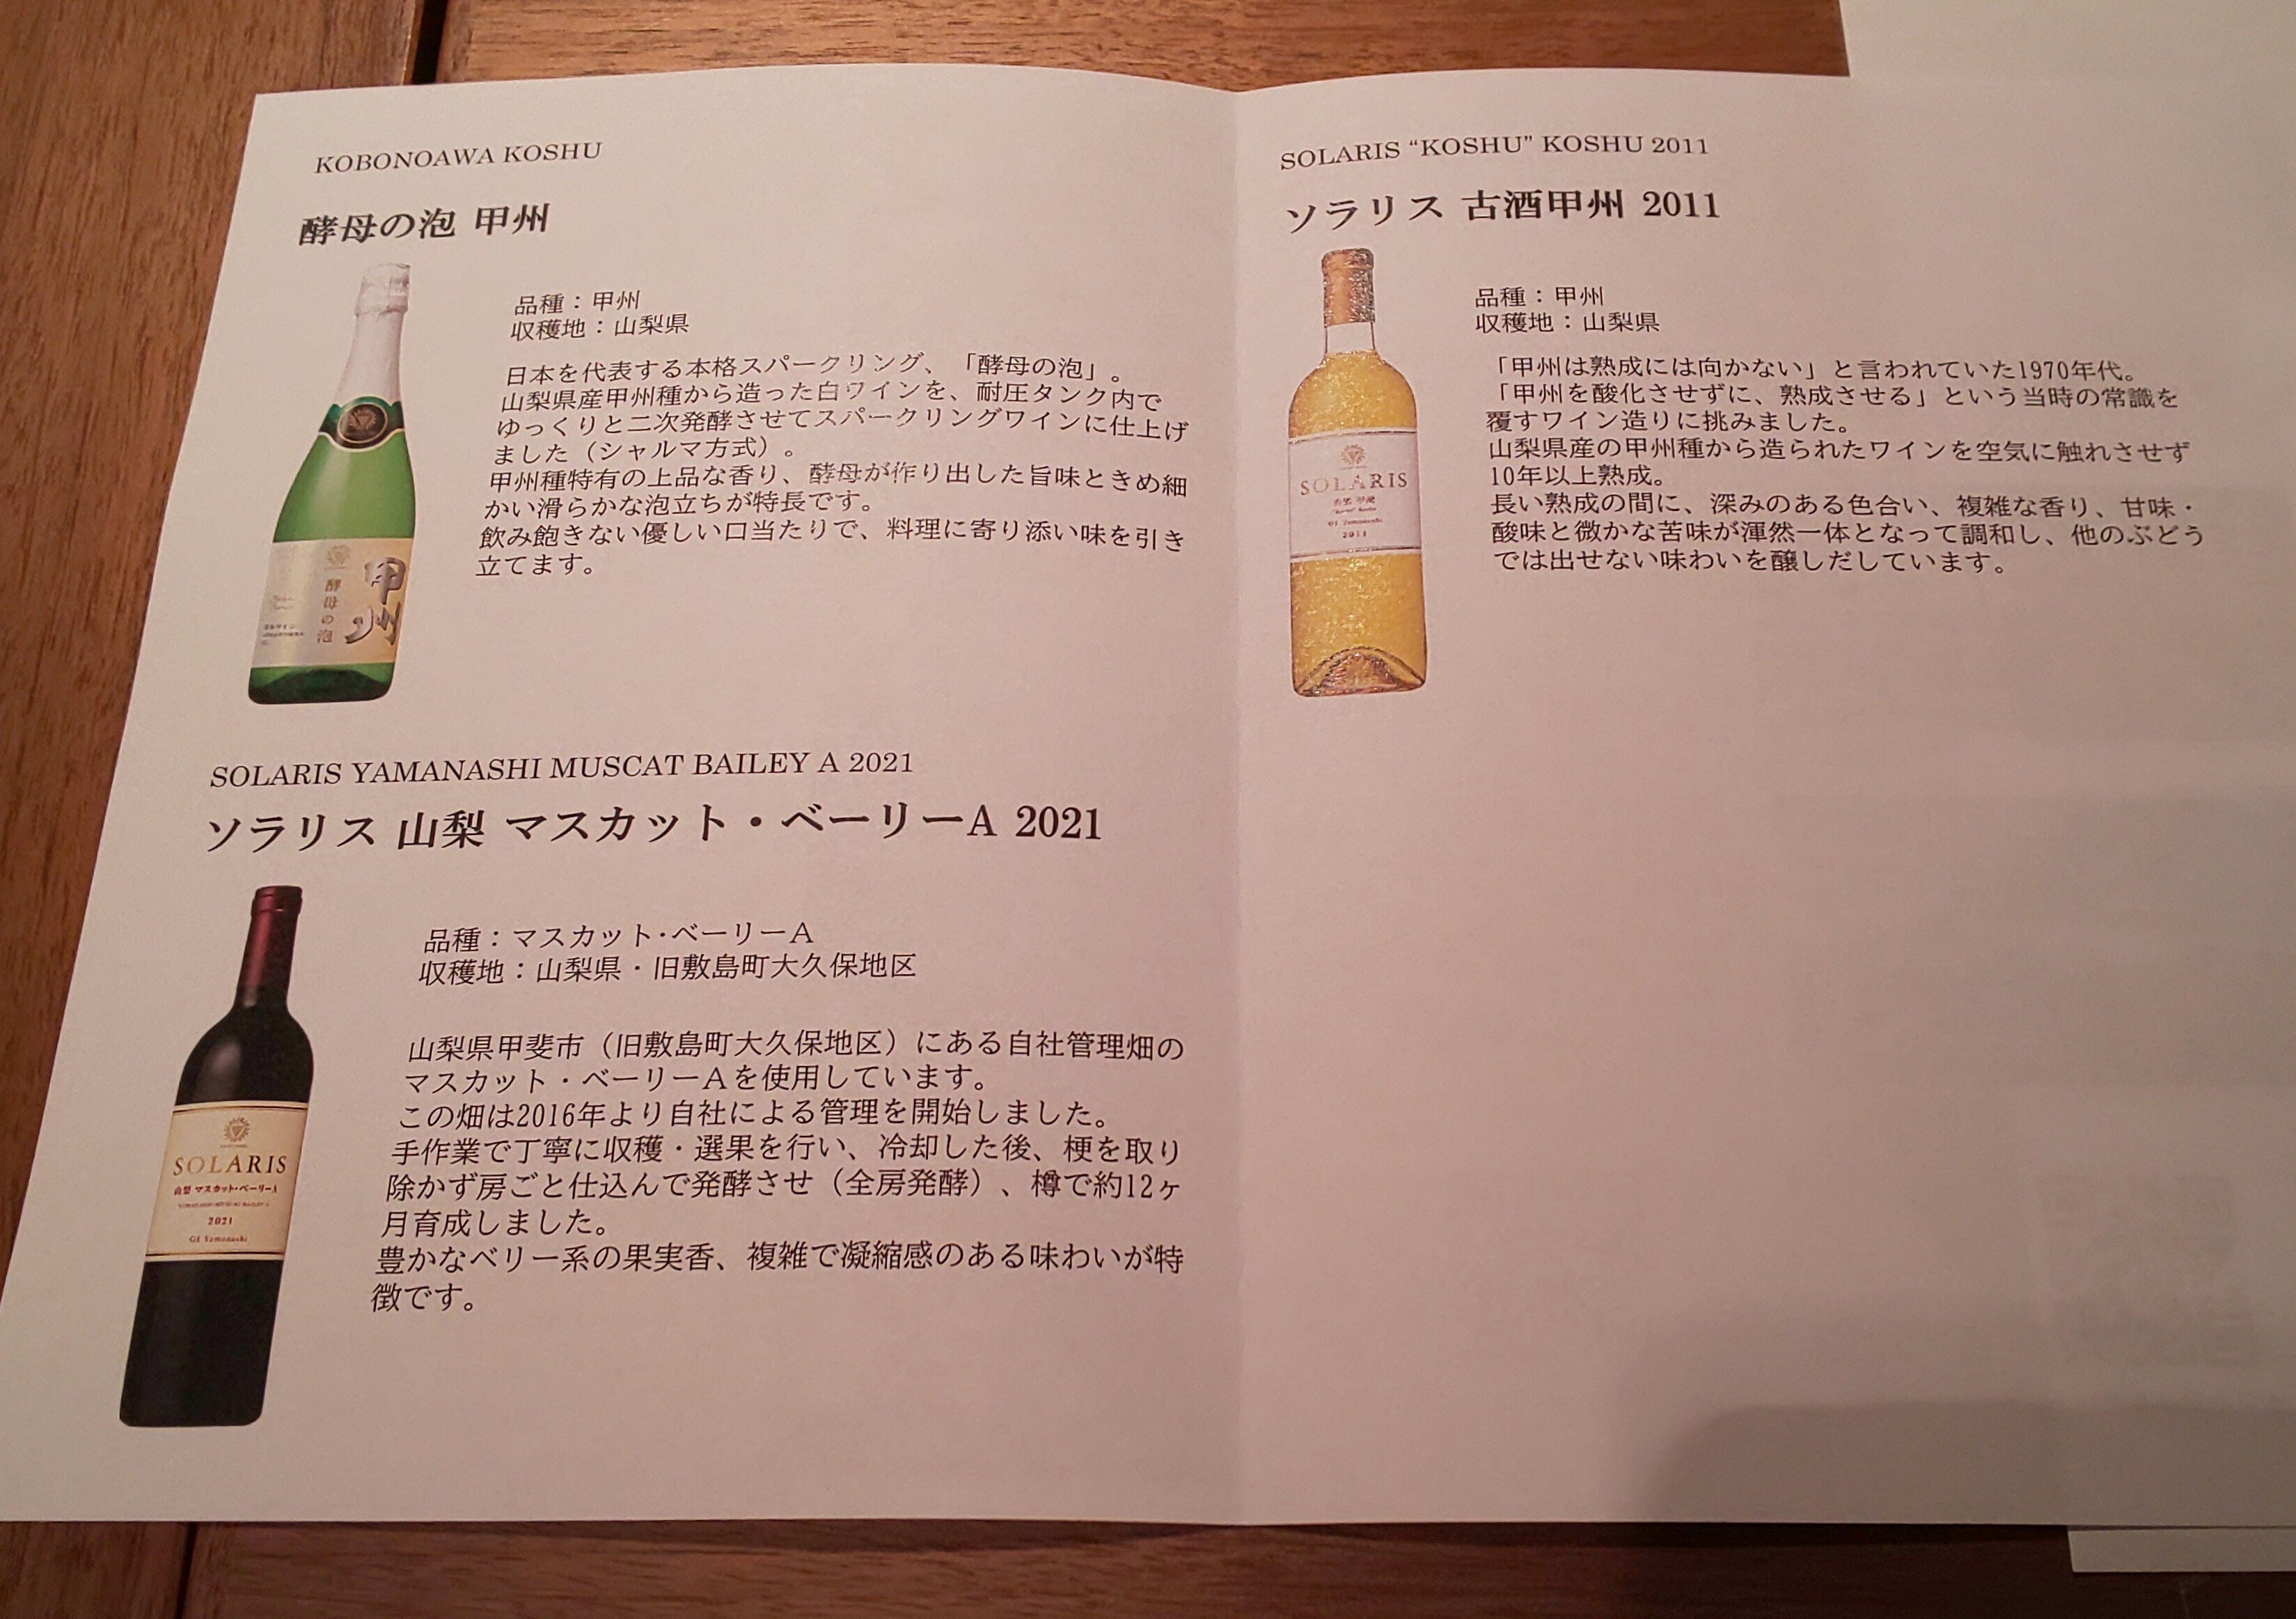 KOBONOAWA KOSHU
酵母の泡 甲州
品種：甲州
収穫地：山梨県
日本を代表する本格スパークリング、「酵母の泡」。
山梨県産甲州種から造った白ワインを、耐圧タンク内で
ゆっくりと二次発酵させてスパークリングワインに仕上げ
ました（シャルマ方式）。
甲州種特有の上品な香り、酵母が作り出した旨味ときめ細
かい滑らかな泡立ちが特長です。
飲み飽きない優しい口当たりで、料理に寄り添い味を引き
立てます。
甲州
酵母の泡
SOLARIS YAMANASHI MUSCAT BAILEY A 2021
ソラリス 山梨 マスカット・ベーリーA 2021
品種：マスカット・ベーリーA
収穫地：山梨県・旧敷島町大久保地区
山梨県甲斐市（旧敷島町大久保地区）にある自社管理畑の
マスカット・ベーリーAを使用しています。
この畑は2016年より自社による管理を開始しました。
手作業で丁寧に収穫・選果を行い、冷却した後、梗を取り
除かず房ごと仕込んで発酵させ（全房発酵）、樽で約12ヶ
月育成しました。
豊かなベリー系の果実香、複雑で凝縮感のある味わいが特
徴です。
SOLARIS
山梨 マスカット・ベーリーA
YAMANASHI MUSCAT BAILEY A
2021
GI Yamanashi
SOLARIS “KOSHU” KOSHU 2011
ソラリス 古酒甲州 2011
品種：甲州
収穫地：山梨県
「甲州は熟成には向かない」と言われていた1970年代。
「甲州を酸化させずに、熟成させる」という当時の常識を
覆すワイン造りに挑みました。
山梨県産の甲州種から造られたワインを空気に触れさせず
10年以上熟成。
長い熟成の間に、深みのある色合い、複雑な香り、甘味・
酸味と微かな苦味が渾然一体となって調和し、他のぶどう
では出せない味わいを醸しだしています。
SOLARIS
古酒 甲州
"Koshu" Koshu
GI Yamanashi
2011